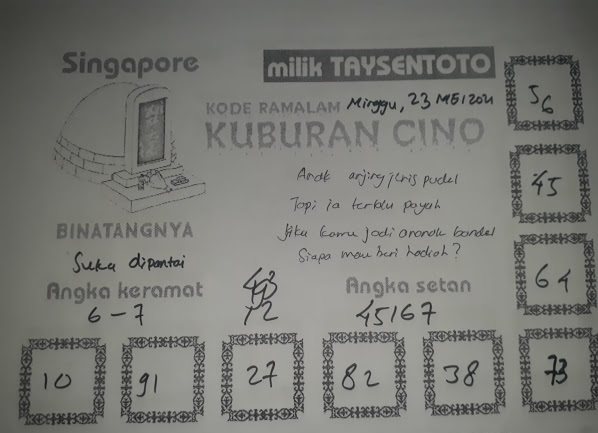 Singapore
milik TAYSENTOTO
KODE RAMALAM Minggu, 23 MEI 2021
KUBURAN CINO
56
45
64
Anak anjing jenis pudel
Tapi ia terlalu payah
Jika kamu jadi anak bandel
Siapa mau beri hadiah?
BINATANGNYA
Suka dipantai
Angka keramat
6-7
12
Angka setan
45167
10
91
27
82
38
73